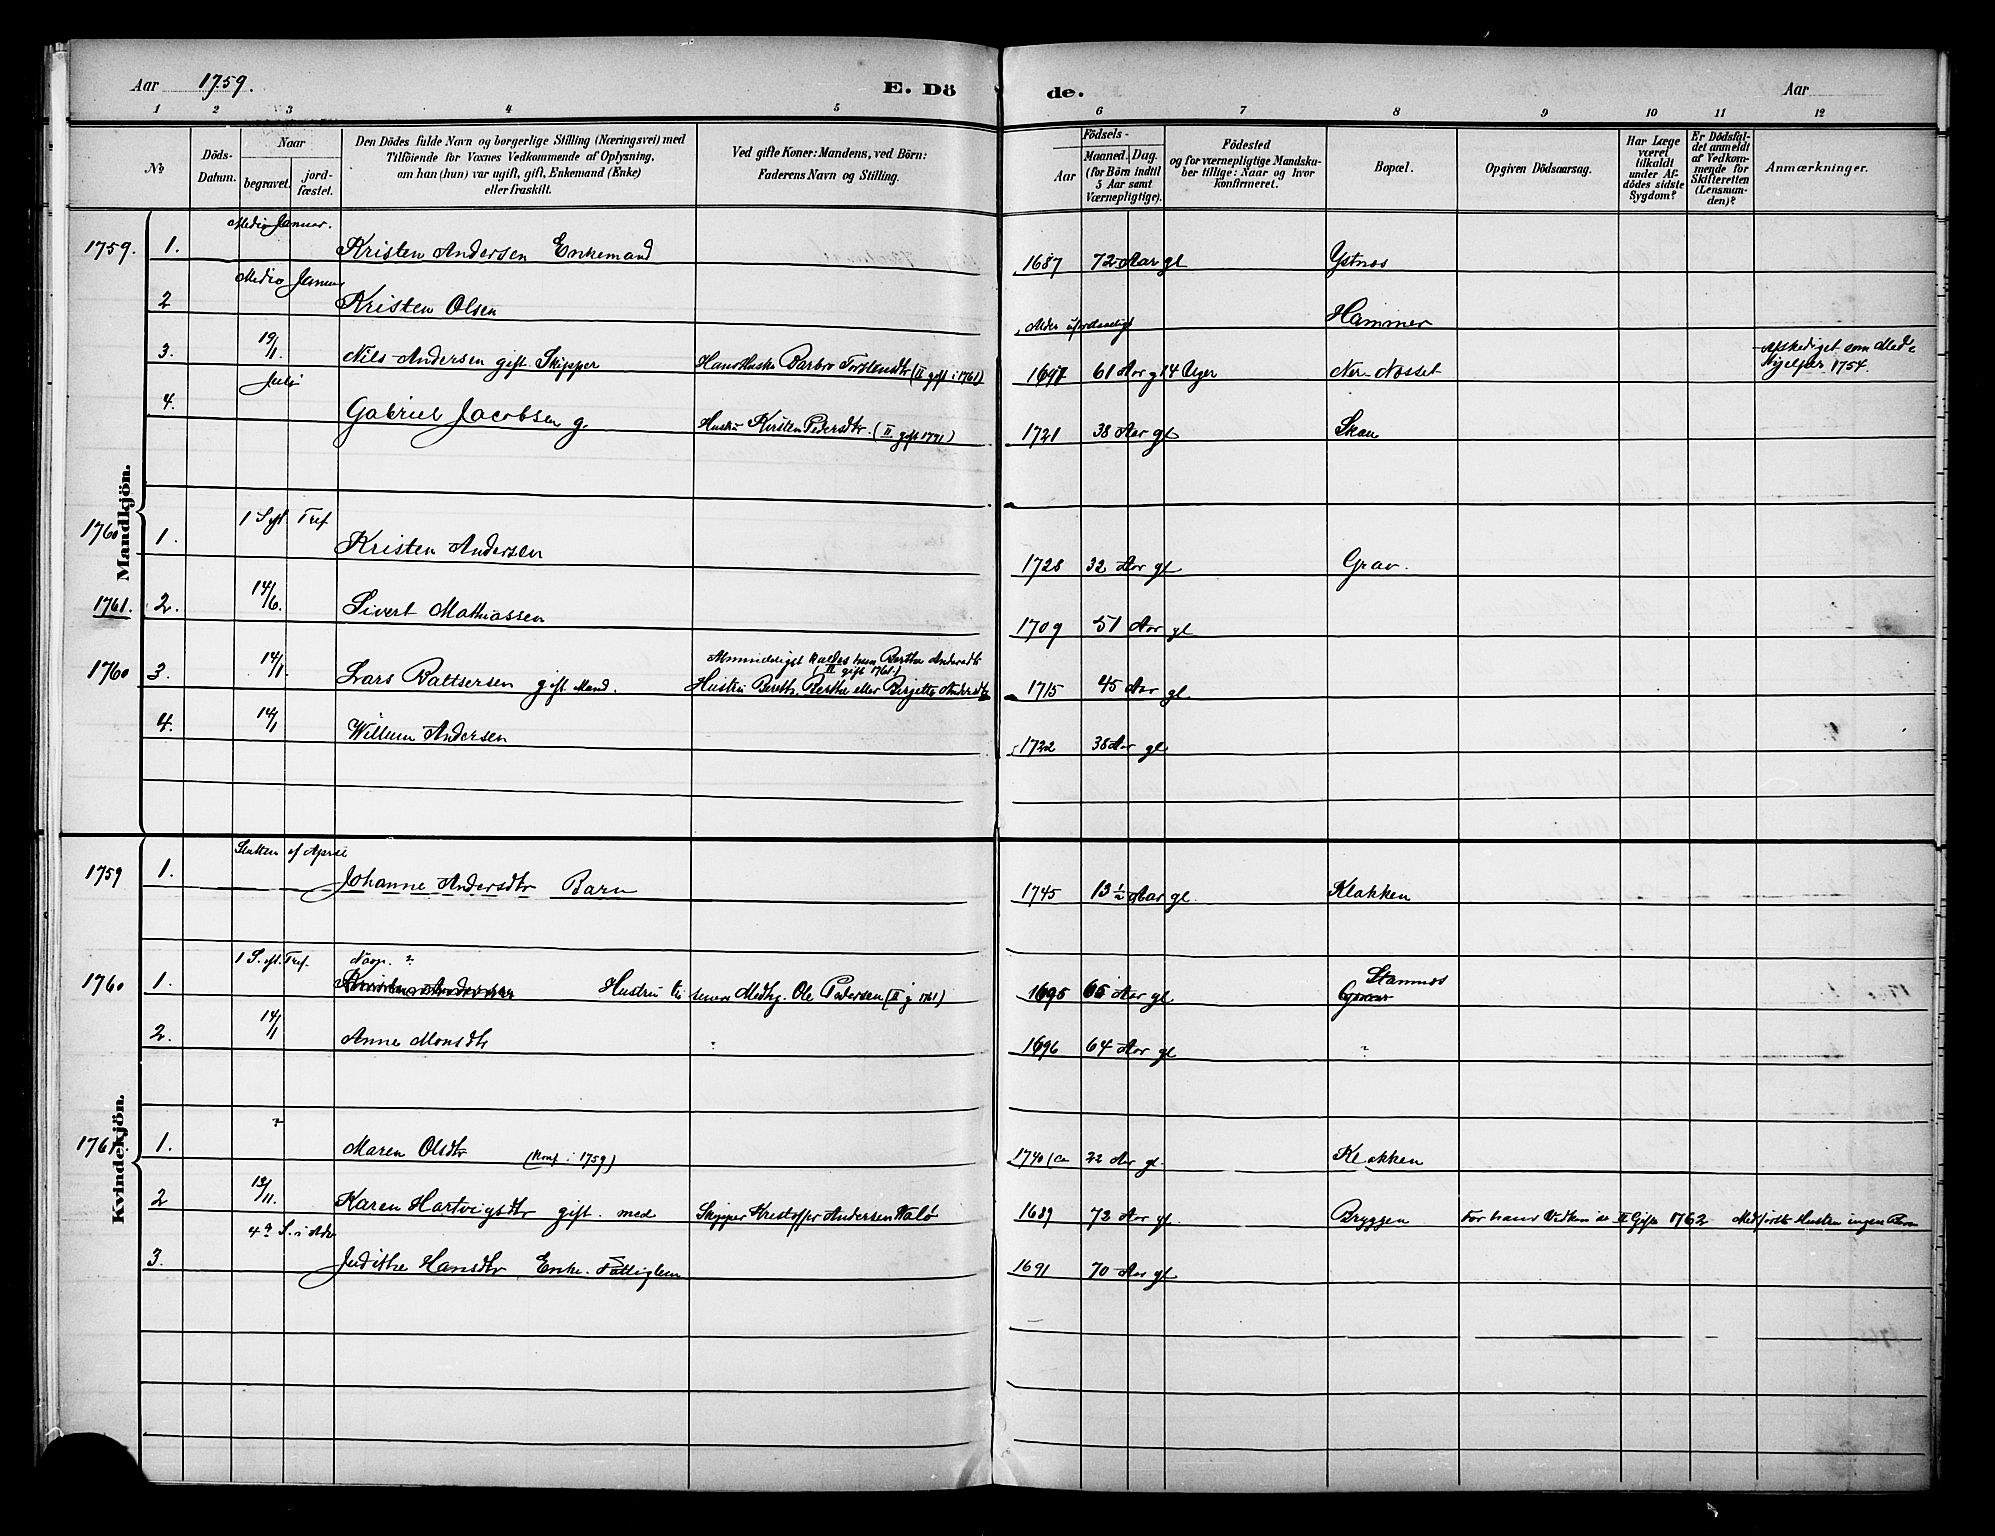 Aar 1759. E. Dö de. Aar
1 2 3 4 5 6 7 8 9 10 11 12
No
Döds-Datum.
Naar
begravet. jordfæstet.
Den Dödes fulde Navn og borgerlige Stilling (Næringsvei) med
Tilföiende for Voxnes Vedkommende af Oplysning,
om han (hun) var ugift, gift, Enkemand (Enke)
eller fraskilt.
Ved gifte Koner: Mandens, ved Börn:
Faderens Navn og Stilling.
Födsels-
Aar
Maaned. Dag.
(for Börn indtil
5 Aar samt
Værnepligtige).
Födested
og for værnepligtige Mandska-
ber tillige: Naar og hvor
konfirmeret.
Bopæl.
Opgiven Dödsaarsag.
Har Læge
været
tilkaldt
under Af-
dödes sidste
Sygdom?
Er Dödsfal-
det anmeldt
af Vedkom-
mende for
Skifteretten
(Lensman-
den)?
Anmærkninger.
Mandkjön.
1759. 1. Medio Januar. Kristen Andersen Enkemand 1687 72 Aar gl Ystnes
2 Medio Januar Kristen Olsen Alder Hammer
3. 19/1. Nils Andersen gift. Skipper Hans Hustru Barbro Torstensdtr (II gift i 1761) 1697 61 Aar gl 4 Uger Ner-Nosset Afskediget som Med-
hjelper 1754.
4. Juli Gabriel Jacobsen g. Hustru Kirsten Pedersdtr. (II gift 1771) 1721 38 Aar gl Skau
1760 1. 1 S. eft. Tref Kristen Andersen 1728 32 Aar gl Grav.
1761. 2. 14/6. Sivert Mathiassen 1709 51 Aar gl
1760 3. 14/1. Lars Baltsersen gift. Mand. Almindeligst kaldes hun Berthe Andersdtr
(II gift 1761)
Hustru Bereth, Berthe eller Birgitte Andersdtr 1715 45 Aar gl
4. 14/1 Willum Andersen 1722 38 Aar gl
Kvindekjön.
1759 1. Slutten af April Johanne Andersdtr Barn 1745 13 1/2 Aar gl. Klakken
1760 1. 1 S. eft. Tref. Navn. ? Kristen Andersen Hustru til senere Medhj. Ole Pedersen (II g 1761) 1695 65 Aar gl Stamnes
Grav
2. 14/1 Anne Monsdtr ? 1696 64 Aar gl ?
1761. 1. ? Maren Olsdtr (Konf. i 1759) 1740 (ca 22 Aar gl. Klakken
2 13/11. Karen Hartvigsdtr gift. med Skipper Kristoffer Andersen Valö 1689 72 Aar gl. Bryggen For hans Vedkom. se II Gifte 1762 Med förste Hustru ingen Barn
3. 4de S. i Adv Judithe Hansdtr Enke. Fattiglem 1691 70 Aar gl